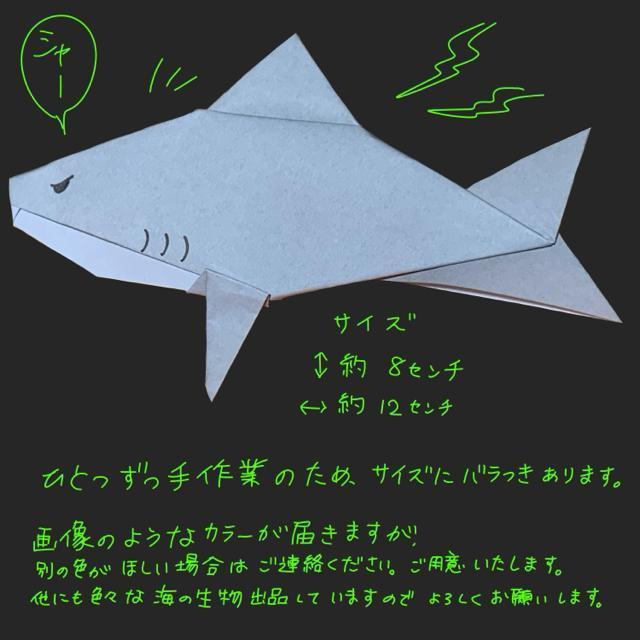 シャー
サイズ
↕ 約 8センチ
↔ 約 12センチ
ひとつずつ手作業のため、サイズにバラつきあります。
画像のようなカラーが届きますが！
別の色がほしい場合はご連絡ください。ご用意いたします。
他にも色々な海の生物出品していますのでよろしくお願いします。